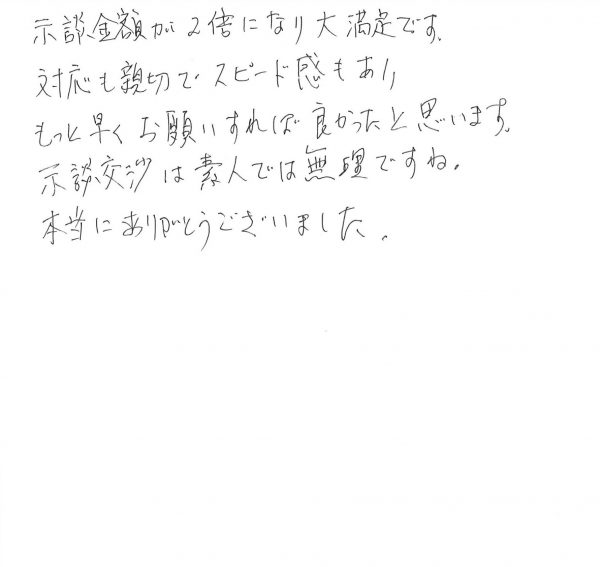 示談金額が2倍になり大満足です。
対応も親切でスピード感もあり、
もっと早くお願いすれば良かったと思います。
示談交渉は素人では無理ですね。
本当にありがとうございました。